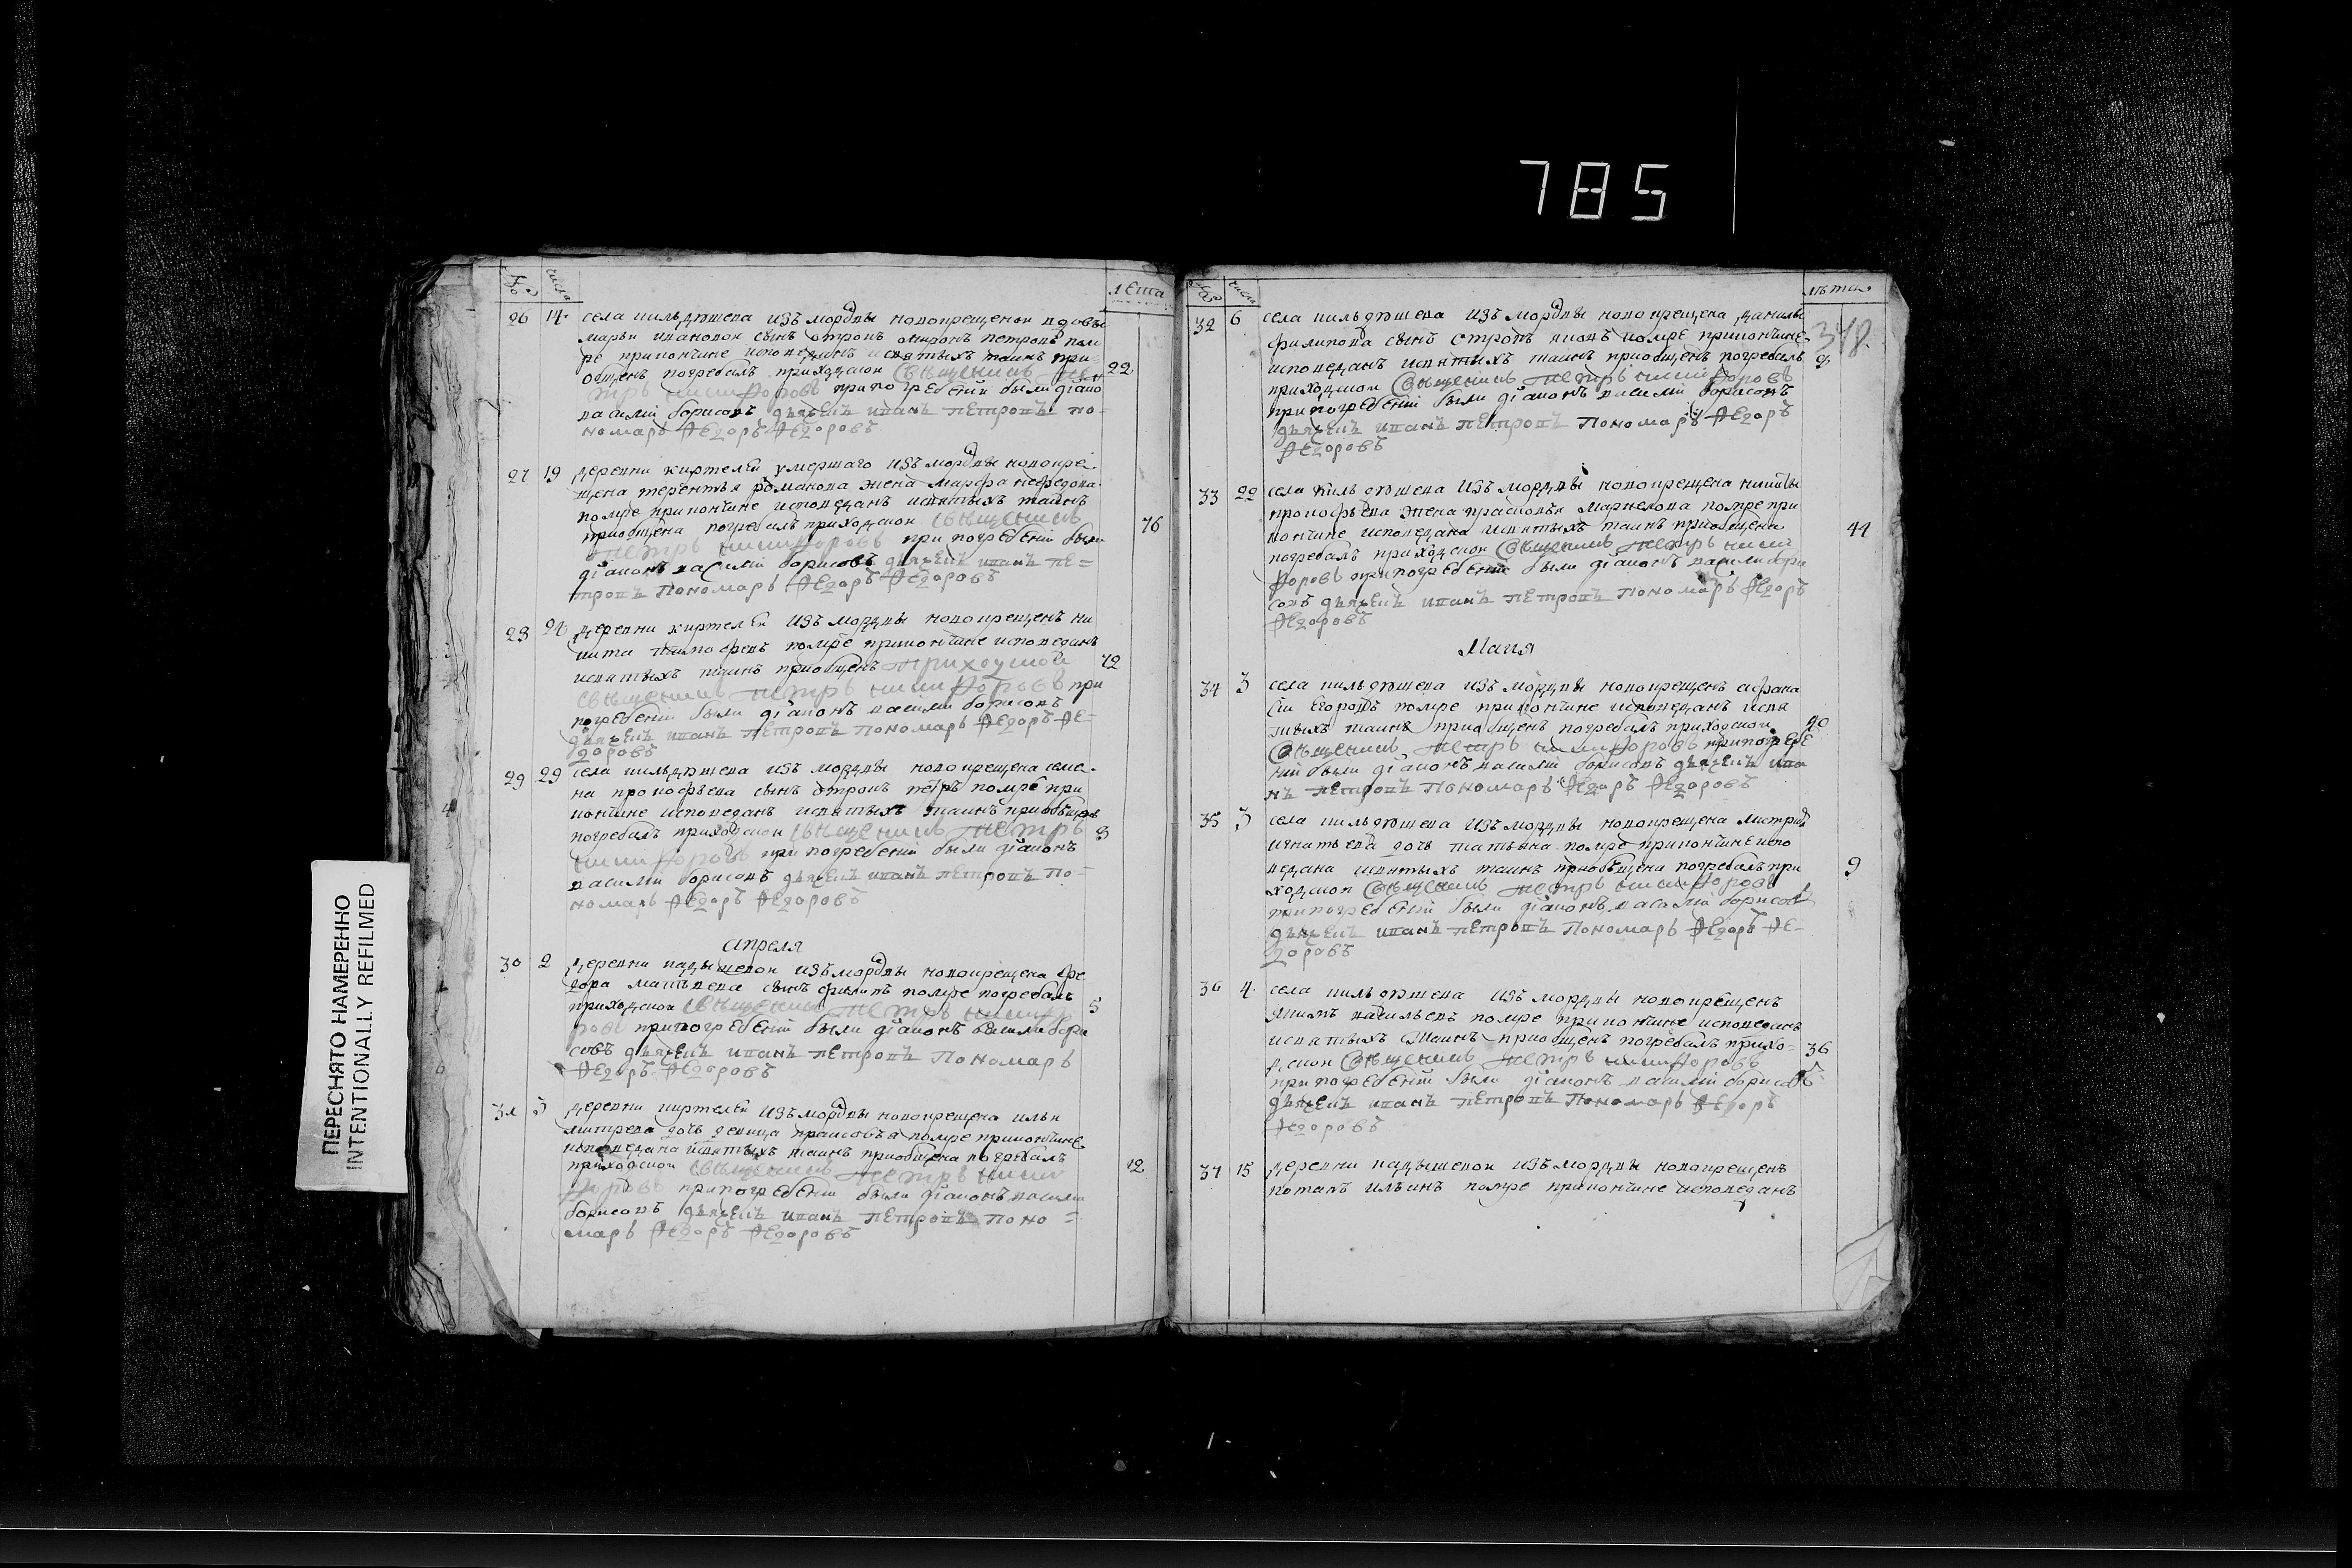 785
ПЕРЕСНЯТО НАМЕРЕННО
INTENTIONALLY REFILMED
числа
лета
26 14 села пильдюшева изъ мордвы новокрещенои вдовы
марьи ивановои сынъ отрокъ миронъ петровъ пом
ре при кончине исповеданъ и святыхъ таинъ при
общенъ погребалъ приходскои священникъ пе 22
тръ никифоровъ при погребении были дiако
василiи борисовъ дьячекъ иванъ петровъ по=
номарь федоръ федоровъ
27 19 деревни киртелеи умершаго изъ мордвы новокре
щена терентья романова жена марфа нефедова
помре при кончине исповедан святыхъ таинъ
приобщена погребалъ приходскои священникъ 76
петръ никифоровъ при погребенiи были
дiаконъ василiи борисовъ дьячекъ иванъ пе=
тровъ пономарь федоръ федоровъ
28 деревни киртелеи изъ мордвы новокрещенъ ни
кита тимофеевъ помре при кончине исповеданъ
и святыхъ таинъ приобщенъ приходскои 72
священникъ петръ никифоровъ при
погребенiи были дiаконъ василiи борисовъ
дьячекъ иванъ петровъ пономарь федоръ фе=
доровъ
29 29 села пильдюшева изъ мордвы новокрещена семе
на прокофьева сынъ отрокъ петръ помре при
кончине исповеданъ и святыхъ таинъ приобщенъ
погребалъ приходскои священникъ петръ 8
никифоровъ при погребенiи были дiаконъ
василiи борисовъ дьячекъ иванъ петровъ по=
номарь федоръ федоровъ
апреля
30 2 деревни изъ мордвы новокрещена фе
дора матвеева сынъ филипъ помре погребалъ
приходскои священникъ петръ никифо 5
ровъ при погребенiи были дiаконъ василiи бори
совъ дьячекъ иванъ петровъ пономарь
федоръ федоровъ
31 3 деревни киртелеи изъ мордвы новокрещена ильи
митрева дочь девица прасковья помре при кончине
исповедана и святыхъ таинъ приобщена погребалъ
приходскои священникъ петръ ники 12
форовъ при погребенiи были дiаконъ василiи
борисовъ дьячекъ иванъ петровъ поно=
марь федоръ федоровъ
числа
лѣта
348
32 6 села пильдюшева изъ мордвы новокрещена данилы
филипова сынъ отрокъ иовъ помре при кончине
исповеданъ и святыхъ таинъ приобщенъ погребалъ
приходскои священникъ петръ никифоровъ
при погребенiи были дiаконъ василiи борисовъ
дьячекъ иванъ петровъ пономарь федоръ
федоровъ
33 22 села пильдюшева изъ мордвы новокрещена никиты
прокофьева жена прасковья маркелова помре при
кончине исповедана и святыхъ таинъ приобщена 44
погребалъ приходскои священникъ петръ ники
форовъ при погребенiи были дiаконъ василiи бори
совъ дьячекъ иванъ петровъ пономарь федоръ
федоровъ
Маия
34 3 села пильдюшева изъ мордвы новокрещенъ афана
сiи егоровъ помре при кончине исповеданъ и свя
тыхъ таинъ приобщенъ погребалъ приходскои 40
священникъ петръ никифоровъ при погребе
нiи были дiаконъ василiи борисовъ дьячекъ ива
нъ петровъ пономарь федоръ федоровъ
35 3 села пильдюшева изъ мордвы новокрещена митрия
игнатьева дочь татьяна помре при кончине испо
ведана и святыхъ таинъ приобщена погребалъ при 9
ходскои священникъ петръ никифоровъ
при погребенiи были дiаконъ василiи борисовъ
дьячекъ иванъ петровъ пономарь федоръ фе=
доровъ
36 4 села пильдюшева изъ мордвы новокрещенъ
якимъ васильевъ помре при кончине исповеданъ
и святыхъ таинъ приобщенъ погребалъ прихо= 36
дскои священникъ петръ никифоровъ
при погребенiи были дiаконъ василiи борисовъ
дьячекъ иванъ петровъ пономарь федоръ
федоровъ
37 15 деревни изъ мордвы новокрещенъ
потапъ ильинъ помре при кончине исповеданъ